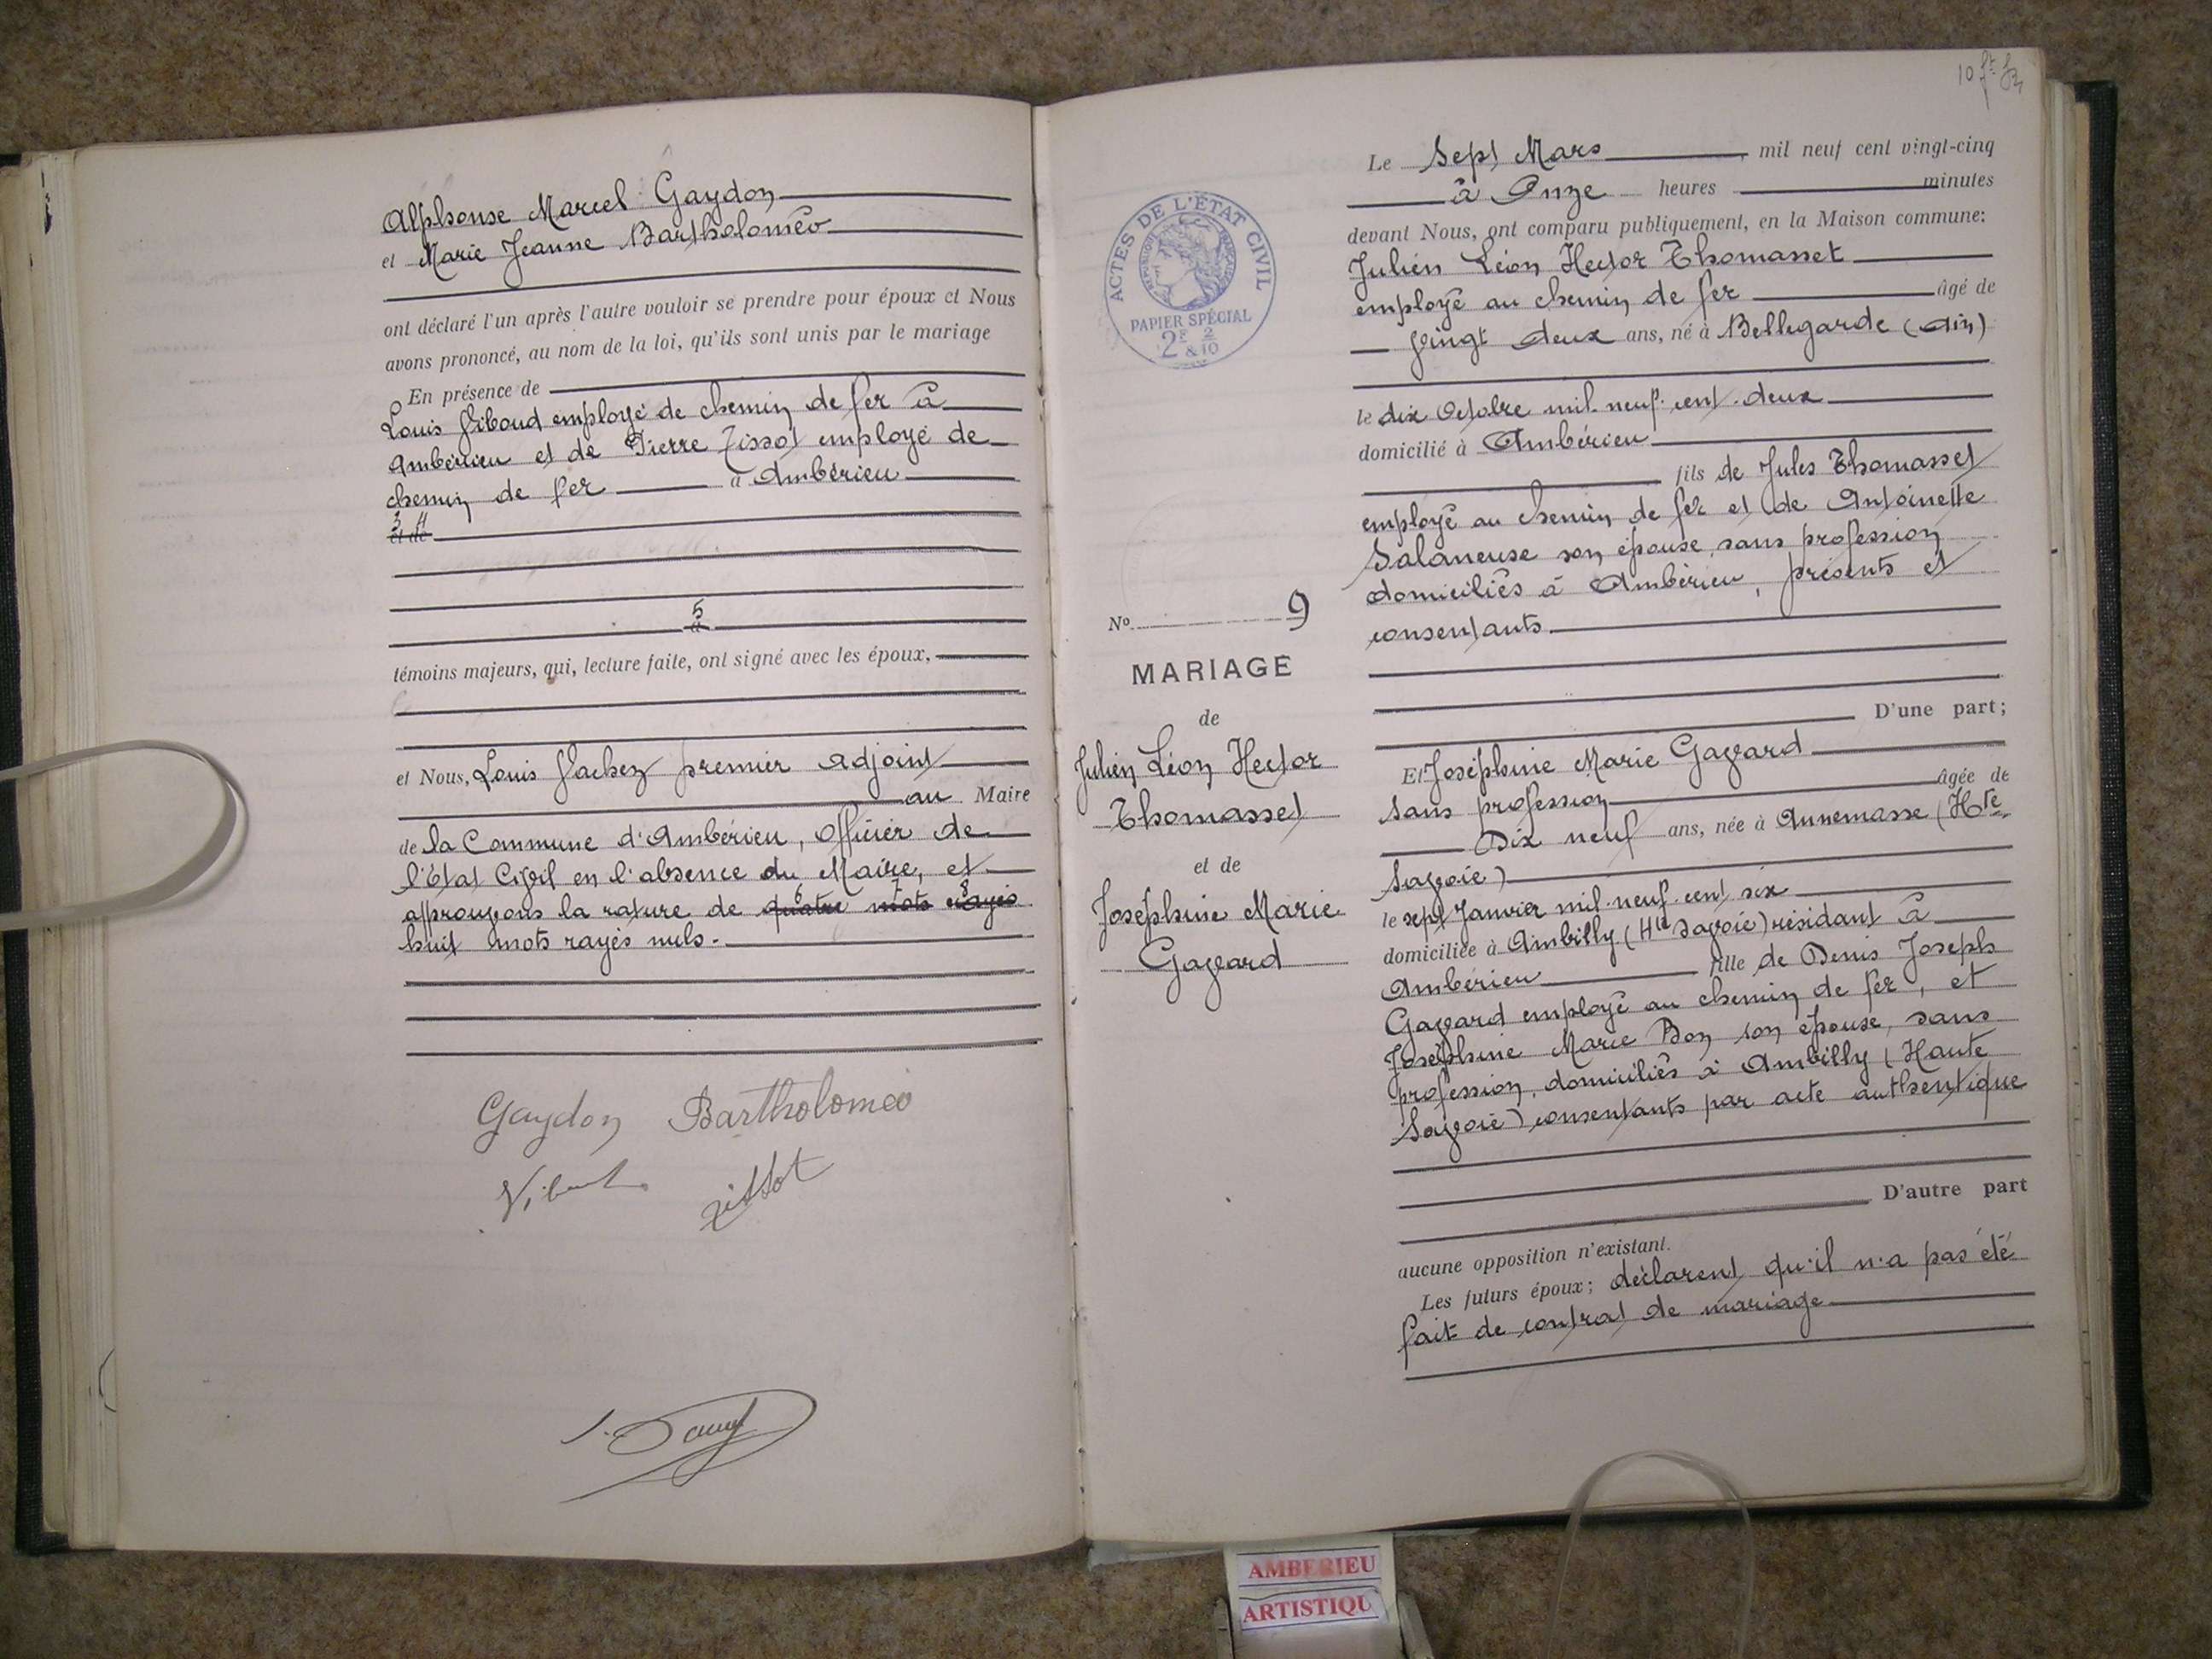 Alphonse Marcel Gaydon
et Marie Jeanne Bartholoméo
ont déclaré l'un après l'autre vouloir se prendre pour époux et Nous
avons prononcé, au nom de la loi, qu'ils sont unis par le mariage
En présence de
Louis Viboud employé de chemin de fer à
Ambérieu et de Pierre Tissot employé de
chemin de fer à Ambérieu
3 4
et de
5
à
témoins majeurs, qui, lecture faite, ont signé avec les époux,
et Nous, Louis Vachez premier adjoint
au Maire
de la Commune d'Ambérieu, Officier de
l'État Civil en l'absence du Maire, et
6 7 8
approuvons la rature de quatre mots rayés
huit mots rayés nuls.
Gaydon Bartholoméo
Tissot
10 ft
Le Sept Mars mil neuf cent vingt-cinq
à Onze heures minutes
devant Nous, ont comparu publiquement, en la Maison commune:
ACTES DE L'ÉTAT CIVIL
PAPIER SPÉCIAL
2F & 2/10
Julien Léon Hector Thomasset
employé au chemin de fer âgé de
Vingt deux ans, né à Bellegarde (Ain)
le dix Octobre mil neuf cent deux
domicilié à Ambérieu
fils de Jules Thomasset
employé au chemin de fer et de Antoinette
Salaneuse son épouse, sans profession
domiciliés à Ambérieu, présents et
consentants
D'une part;
No 9
MARIAGE
de
Julien Léon Hector
Thomasset
et de
Joséphine Marie
Gavard
Et Joséphine Marie Gavard
sans profession âgée de
Dix neuf ans, née à Annemasse (Hte
Savoie)
le sept Janvier mil neuf cent six
domiciliée à Ambilly (Hte Savoie) résidant à
Ambérieu fille de Denis Joseph
Gavard employé au chemin de fer, et
Joséphine Marie Bon son épouse, sans
profession, domiciliés à Ambilly (Haute
Savoie) consentants par acte authentique
D'autre part
aucune opposition n'existant.
Les futurs époux; déclarent qu'il n'a pas été
fait de contrat de mariage
AMBERIEU
ARTISTIQU